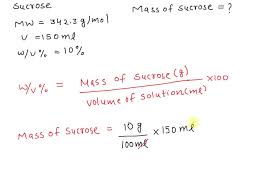 Sucrose
Mass of sucrose = ?
MW = 342.3 g/mol
V = 150 ml
w/v % = 10%
w/v % = Mass of sucrose (g) / volume of solution (ml) × 100
Mass of sucrose = 10 g / 100 ml × 150 ml